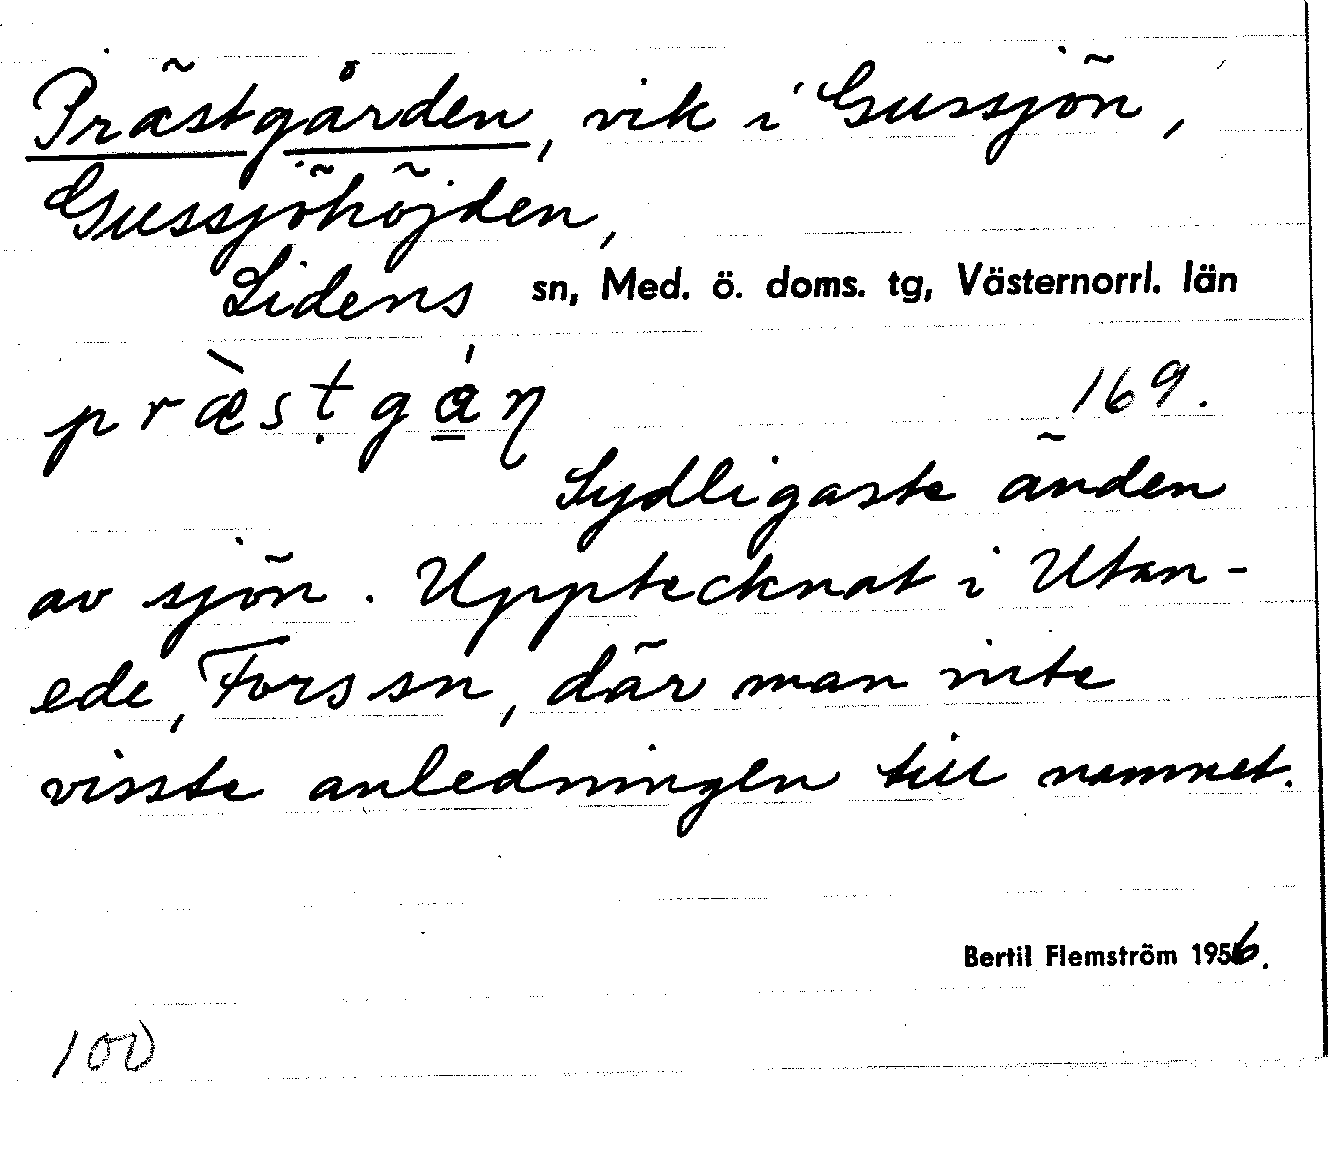 Prästgården, vik i Gussjön,
Gussjöhöjden,
Lidens sn, Med. ö. doms. tg, Västernorrl. län
præ̀sṭgá̲ŋ 169.
Sydligaste änden
av sjön. Upptecknat i Utan-
ede, Fors sn, där man inte
visste anledningen till namnet.
Bertil Flemström 1956.
100